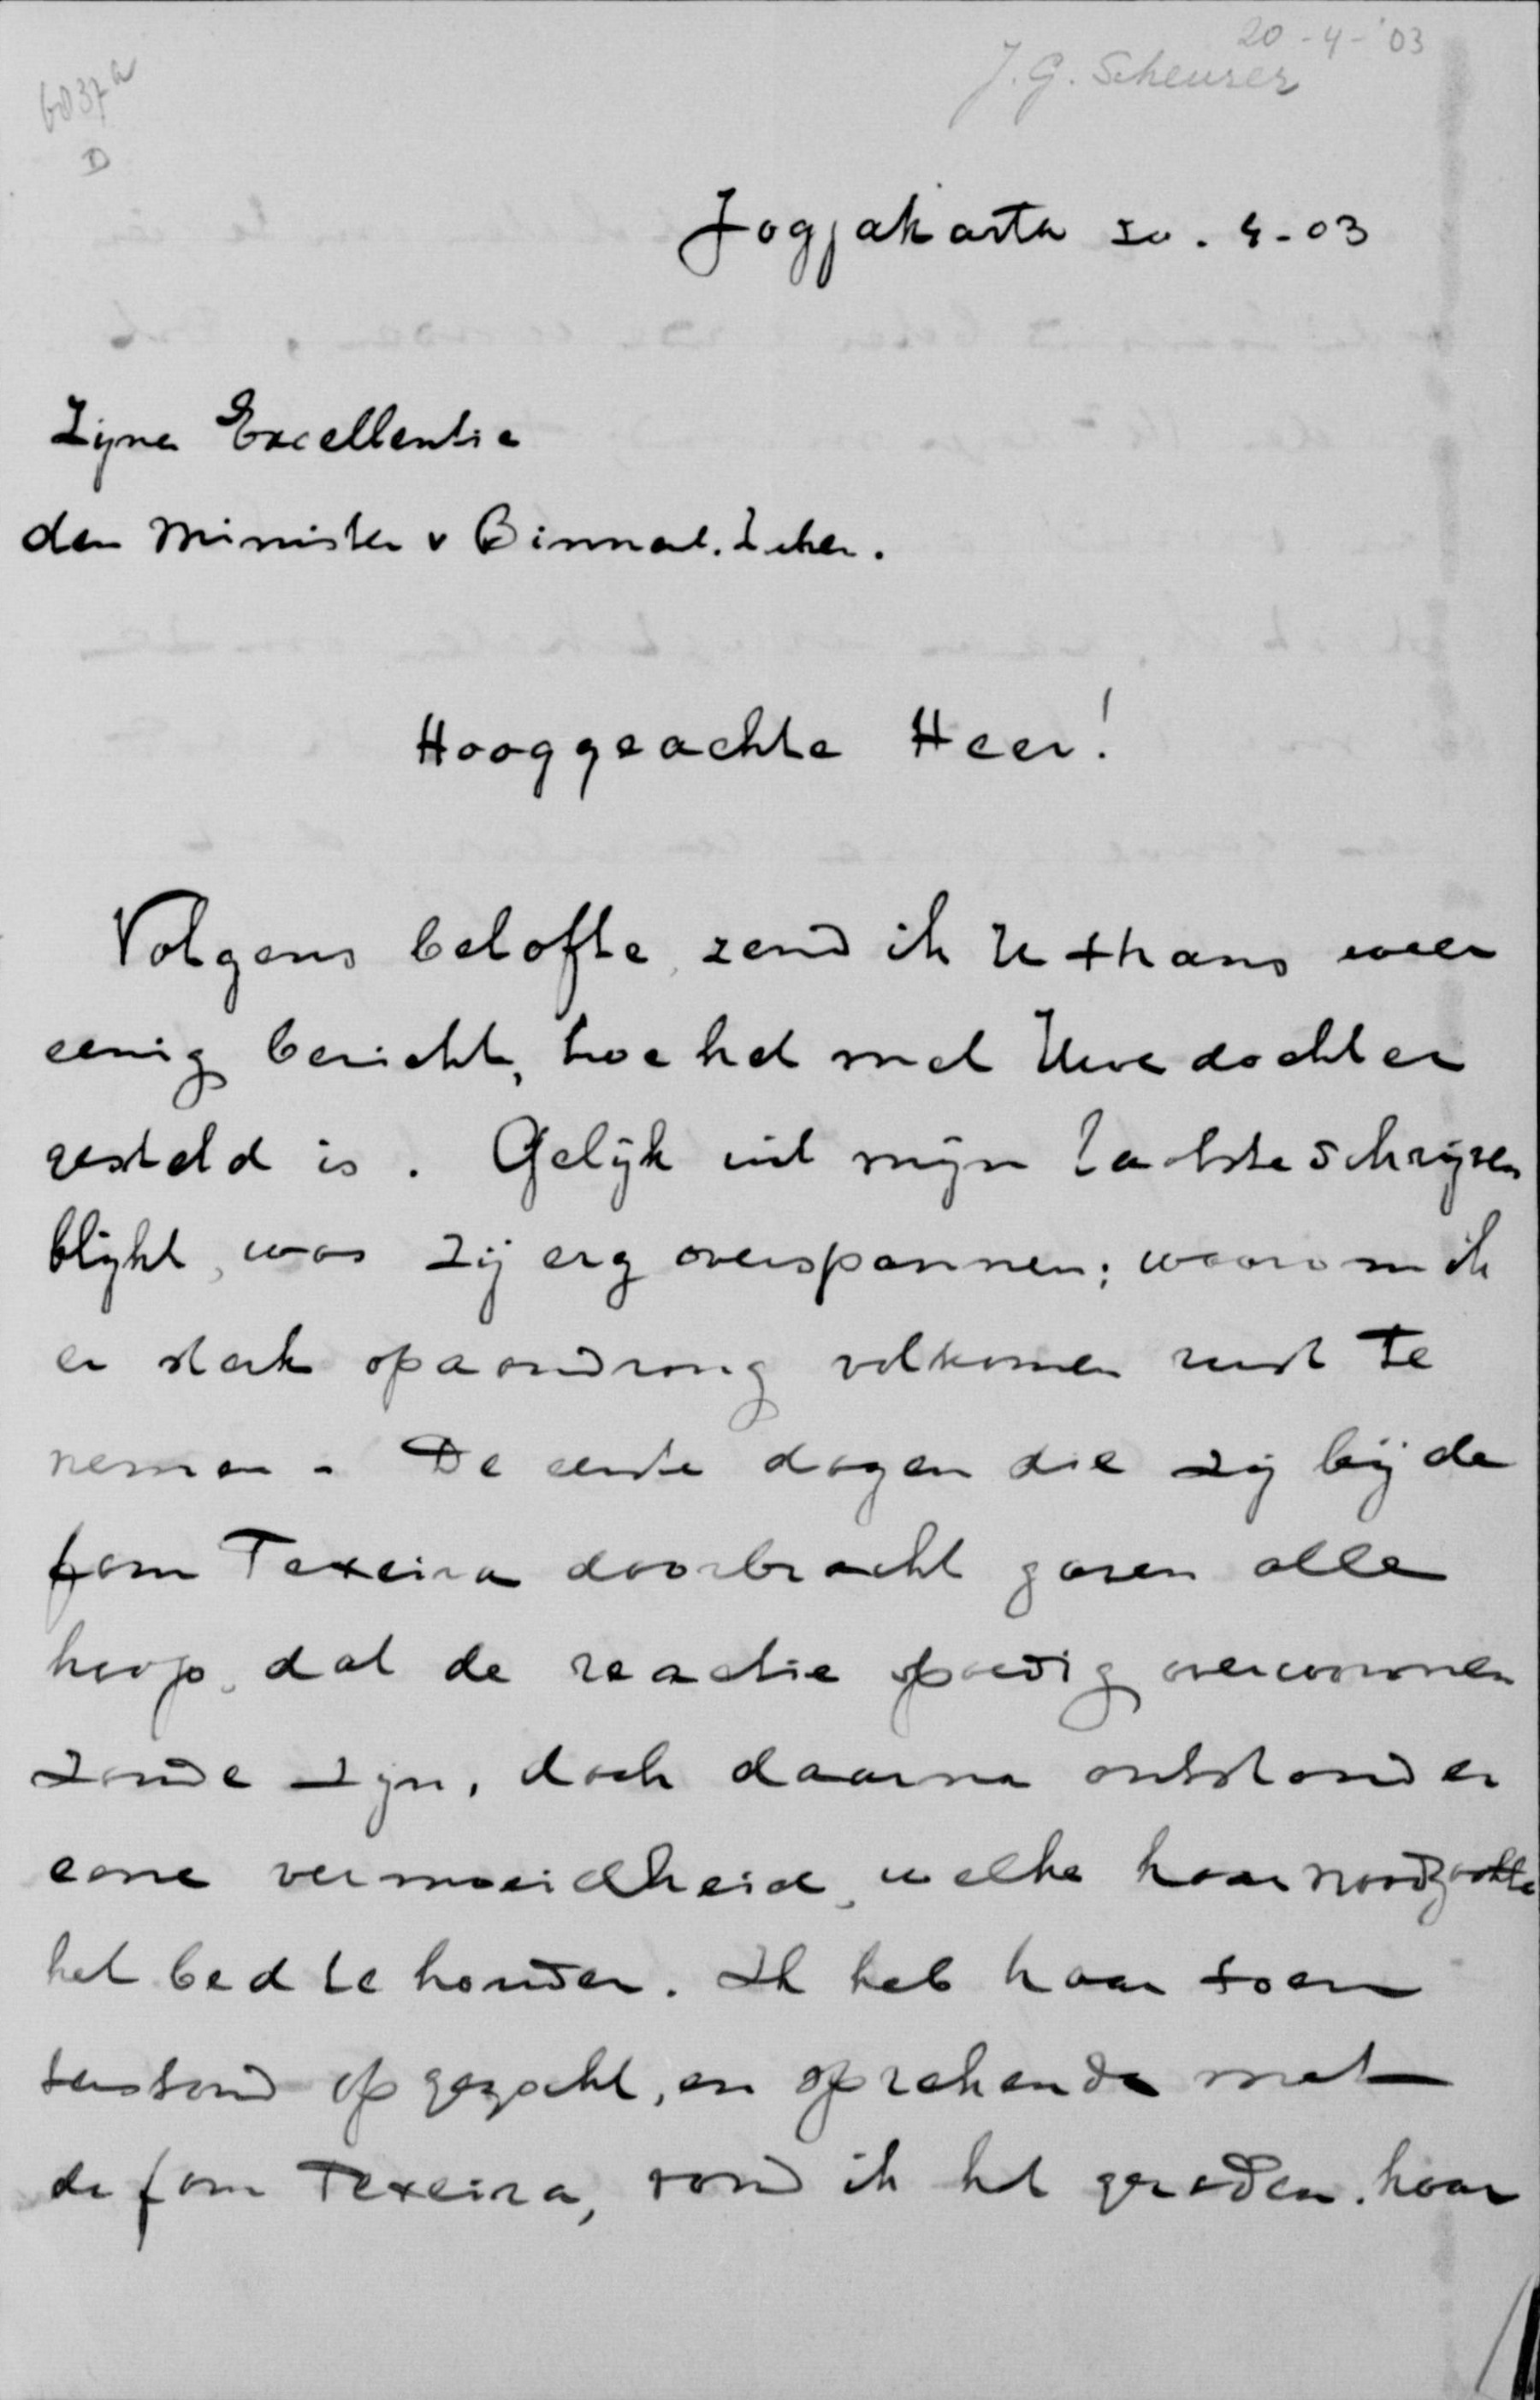 20-4-'03
J. G. Scheurer
6037a
D
Jogjakarta 20.4-03
Zijne Excellentie
den Minister v Binnenl. Zaken.
Hooggeachte Heer!
Volgens belofte, zend ik U thans weer
eenig bericht, hoe het met Uwe dochter
gesteld is. Gelijk uit mijn laatste schrijven
blijkt, was zij erg overspannen; waarom ik
er sterk op aandrong volkomen rust te
nemen. De eerste dagen die zij bij de
fam Texeira doorbracht gaven alle
hoop, dat de reactie spoedig overwonnen
zoude zijn, doch daarna ontstond er
eene vermoeidheid, welke haar noodzaakte
het bed te houden. Ik heb haar toen
terstond opgezocht, en sprekende met
de fam Texeira, vond ik het geraden. haar